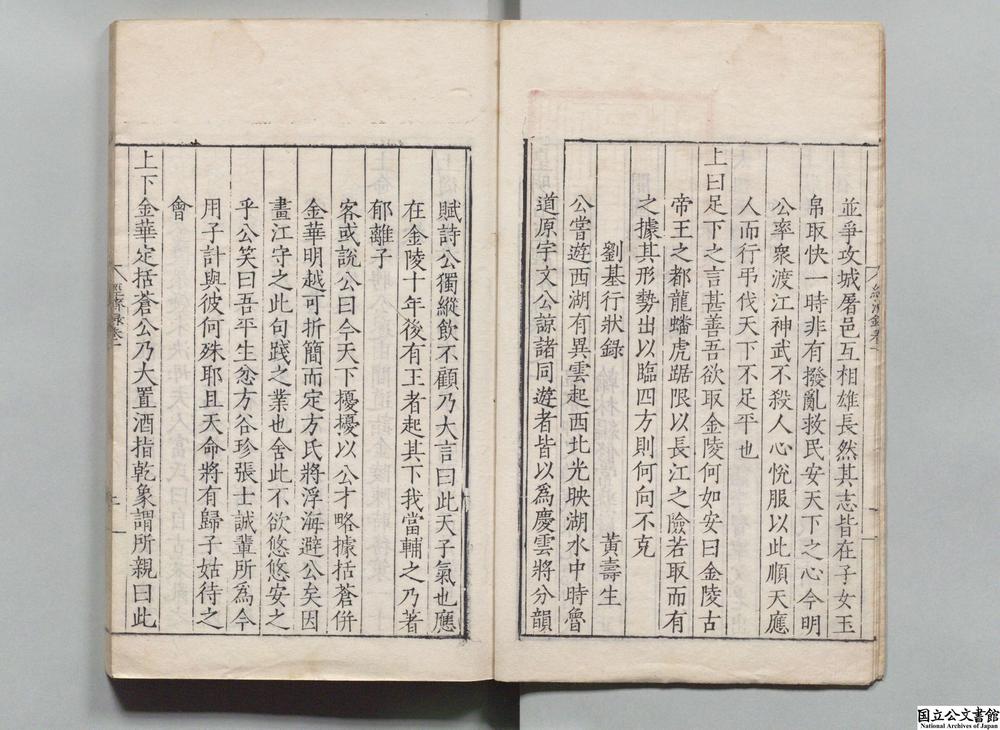 並爭攻城屠邑互相雄長然其志皆在子女玉
帛取快一時非有撥亂救民安天下之心今明
公率衆渡江神武不殺人心悅服以此順天應
人而行弔伐天下不足平也
上曰足下之言甚善吾欲取金陵何如安曰金陵古
帝王之都龍蟠虎踞限以長江之險若取而有
之據其形勢出以臨四方則何向不克
劉基行狀錄 黃壽生
公嘗遊西湖有異雲起西北光映湖水中時魯
道原宇文公諒諸同遊者皆以爲慶雲將分韻
賦詩公獨縱飲不顧乃大言曰此天子氣也應
在金陵十年後有王者起其下我當輔之乃著
郁離子
客或說公曰今天下擾擾以公才略據括蒼併
金華明越可折簡而定方氏將浮海避公矣因
畫江守之此句踐之業也舍此不欲悠悠安之
乎公笑曰吾平生忿方谷珍張士誠輩所爲今
用子計與彼何殊耶且天命將有歸子姑待之
會
上下金華定括蒼公乃大置酒指乾象謂所親曰此
經濟錄卷一
国立公文書館
National Archives of Japan